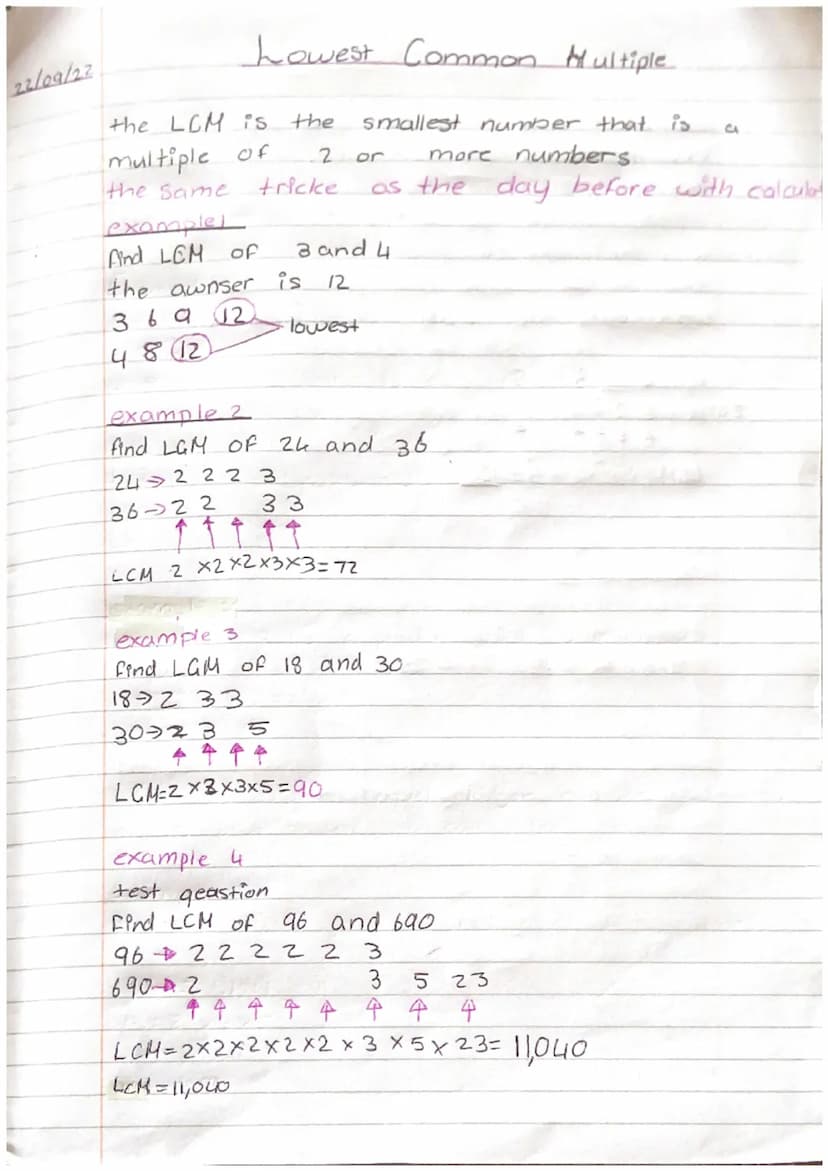 Lowest Common Multiple
22/09/22
the LCM is the smallest number that is a
multiple of 2 or more numbers
the same tricke as the day before with calculat
example1
find LCM of 3 and 4
the awnser is 12
3 6 9 12
lowest
4 8 12
example 2
find LCM of 24 and 36
24→ 2 2 2 3
36→ 2 2 3 3
LCM 2 ×2×2×3×3=72
example 3
find LCM of 18 and 30
18→2 3 3
30→2 3 5
LCM=2×3×3×5=90
example 4
test qeastion
find LCM of 96 and 690
96→ 2 2 2 2 2 3
690→ 2 3 5 23
LCM=2×2×2×2×2×3×5×23= 11,040
LCM=11,040